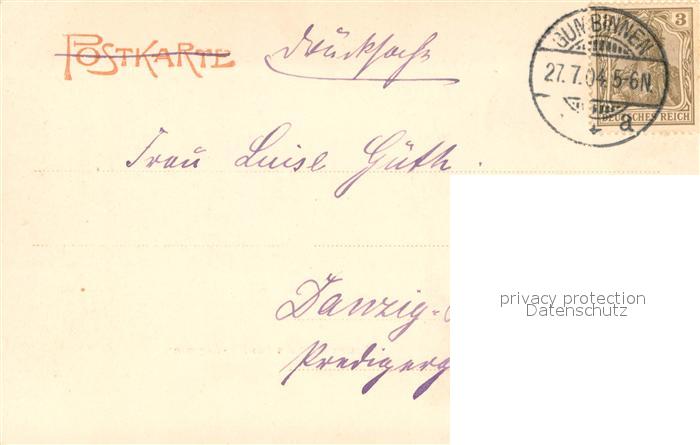 POSTKARTE Drucksache
3
GUMBINNEN
27.7.04.5-6N.
DEUTSCHES REICH
a
Frau Luise Güth.
privacy protection
Datenschutz
Danzig-
Predigerg